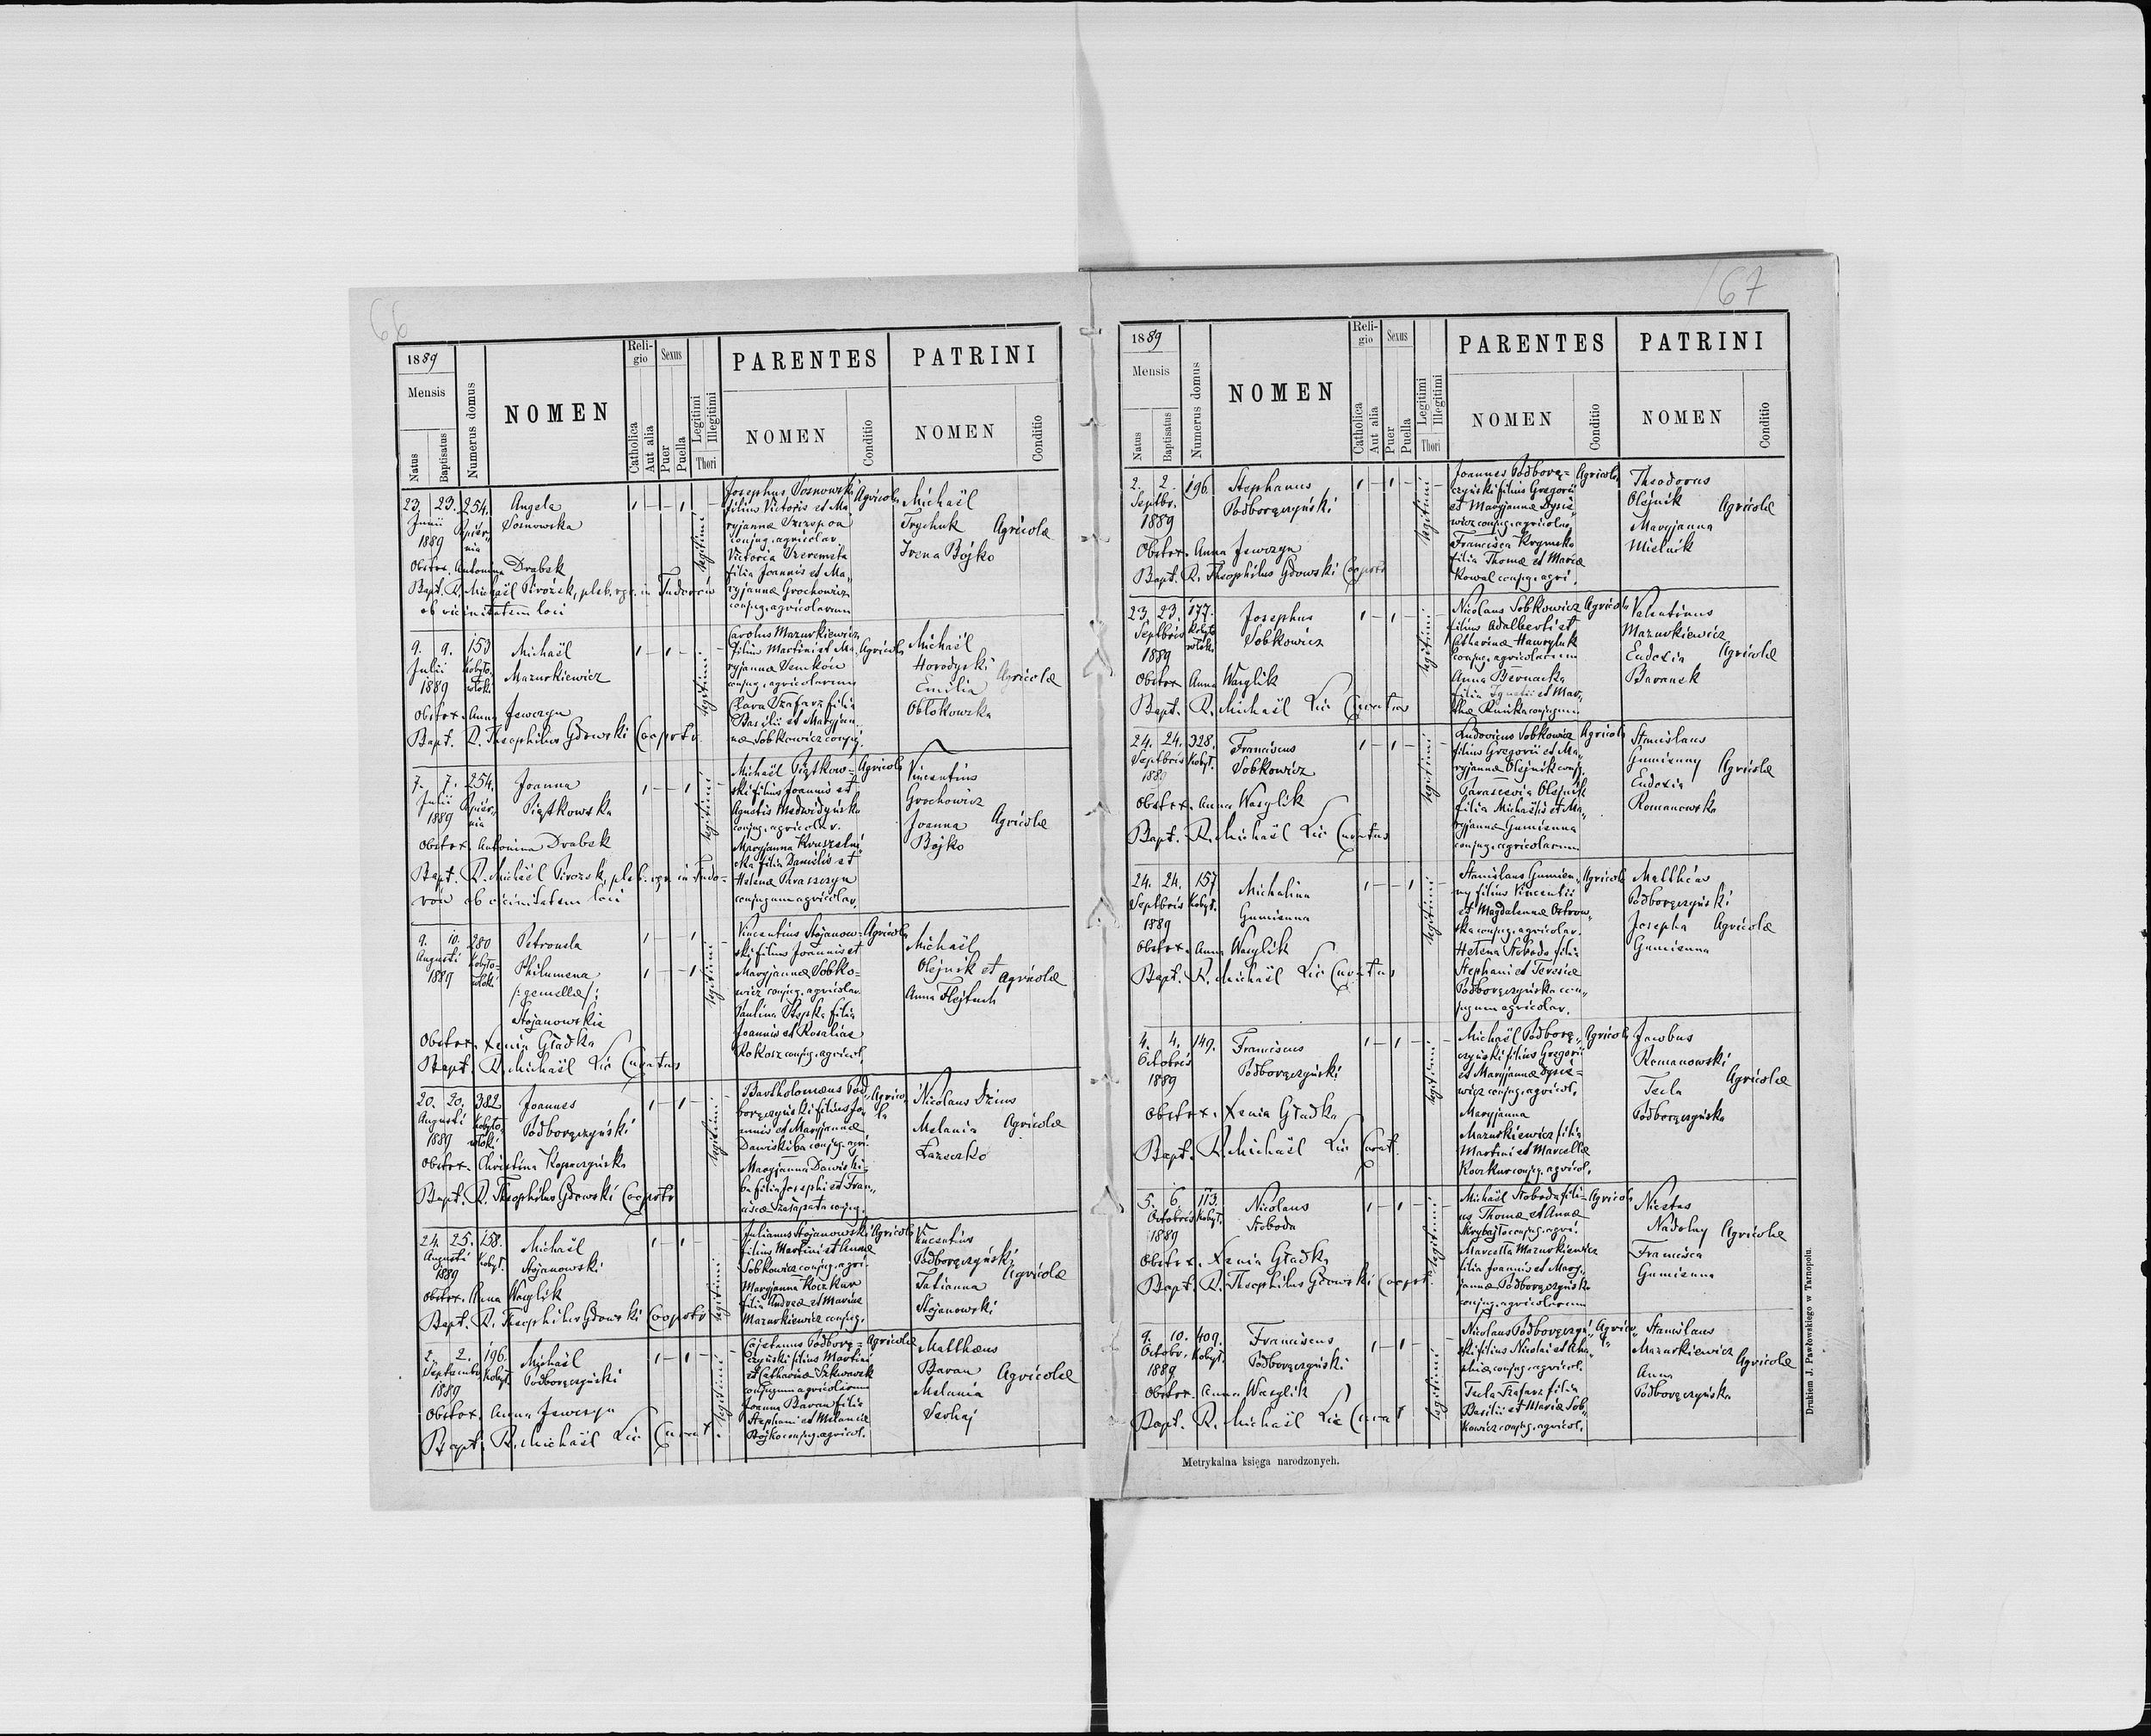 66
1889
Mensis
Natus
Baptisatus
Numerus domus
NOMEN
Religio
Catholica
Aut alia
Sexus
Puer
Puella
Thori
Legitimi
Illegitimi
PARENTES
NOMEN
Conditio
PATRINI
NOMEN
Conditio
23. 23. 254.
Junii
1889
Angela
Sosnowska
legitimi
Josephus Sosnowski
filius Victoris et Ma-
ryjannæ
conjug. agricolar.
Victoria Szeremeta
filia Joannis et Ma-
ryjannæ Grochowicz
conjug. agricolarum
Agricola
Michaël
Trychuk
Irena Bojko
Agricolæ
Obstex. Antonina Drabek
Bapt. R. Michaël Pirożek, pleb. rgr. in Tudorów
ob vicinitatem loci
9. 9. 153
Julii
1889
Kobyło-
włoki
Michaël
Mazurkiewicz
legitimi
Carolus Mazurkiewicz
filius Martini et Ma-
ryjannæ Semkow
conjug. agricolarum
Clara Szafarz filia
Basilii et Maryjan-
næ Sobkowicz conjug.
Agricola
Michaël
Horodyski
Emilia
Obłokowska
Agricolæ
Obstex. Anna Jewczyn
Bapt. R. Theophilus Gdowski Cooprtr
7. 7. 254.
Julii
1889
Joanna
Piątkowska
legitimi
Michaël Piątkow-
ski filius Joannis et
Agnetis Medwidyńska
conjug. agricolar.
Maryjanna Kruszelni-
cka filia Danielis et
Helenæ Paraszczyn
conjugum agricolar.
Agricola
Vincentius
Grochowicz
Joanna
Bojko
Agricolæ
Obstex. Antonina Drabek
Bapt. R. Michaël Pirożek, pleb. rgr. in Tudo-
rów ob vicinitatem loci
9. 10. 280
Augusti
1889
Kobyło-
włoki
Petronela
Philumena
/: gemellæ :/
Stojanowskie
legitimi
Vincentius Stojanow-
ski filius Joannis et
Maryjannæ Sobko-
wicz conjug. agricolar.
Paulina Stopka filia
Joannis et Rosaliæ
Kokosz conjug. agricol.
Agricola
Michaël
Olejnik et
Anna Hejduch
Agricolæ
Obstex. Xenia Gładka
Bapt. R. Michaël Lic Curatus
20. 20. 382
Augusti
1889
Kobyło-
włoki
Joannes
Podboręczyński
legitimi
Bartholomæus Pod-
boręczyński filius Jo-
annis et Maryjannæ
Dawiskiba conjug. agri.
Maryjanna Dawiski-
ba filia Josephi et Fran-
ciscæ Szałapata conjug.
Agrico-
la
Nicolaus Dzius
Melania
Łazeczko
Agricolæ
Obstex. Christina Kopaczyńska
Bapt. R. Theophilus Gdowski Cooprtr
24. 25. 158.
Augusti
1889
Kobył.
Michaël
Stojanowski
legitimi
Julianus Stojanowski
filius Martini et Annæ
Sobkowicz conjug. agri.
Maryjanna Koczkur
filia Andreæ et Mariæ
Mazurkiewicz conjug.
Agricola
Vincentius
Podboręczyński
Tatianna
Stojanowski
Agricolæ
Obstex. Anna Wasylik
Bapt. R. Theophilus Gdowski Cooprtr
2. 2. 196.
Septembr.
1889
Kobył.
Michaël
Podboręczyński
legitimi
Cajetanus Podborę-
czyński filius Martini
et Catharinæ Szkwarek
conjugum agricolarum
Joanna Baran filia
Stephani et Melaniæ
Bojko conjug. agricol.
Agricolæ
Matthæus
Baran
Melania
Serhej
Agricolæ
Obstex. Anna Jewczyn
Bapt. R. Michaël Lic Curat.
67
1889
Mensis
Natus
Baptisatus
Numerus domus
NOMEN
Religio
Catholica
Aut alia
Sexus
Puer
Puella
Thori
Legitimi
Illegitimi
PARENTES
NOMEN
Conditio
PATRINI
NOMEN
Conditio
2. 2. 196.
Septbr.
1889
Stephanus
Podboręczyński
legitimi
Joannes Podborę-
czyński filius Gregorii
et Maryjannæ Dysie-
wicz conjug. agricolar.
Francisca Krymska
filia Thomæ et Mariæ
Kowal conjug. agri.
Agricola
Theodorus
Olejnik
Maryjanna
Mielnik
Agricolæ
Obstex. Anna Jewczyn
Bapt. R. Theophilus Gdowski Cooprtr
23. 23. 177.
Septbris
1889
Kobyło
włoki
Josephus
Sobkowicz
legitimi
Nicolaus Sobkowicz
filius Adalberti et
Catharinæ Hawryluk
conjug. agricolarum
Anna Bernacka
filia Ignatii et Mar-
thæ conjugum
Agricola
Valentinus
Mazurkiewicz
Eudoxia
Baranek
Agricolæ
Obstex Anna Wasylik
Bapt. R. Michaël Lic Curatus
24. 24. 328.
Septbris
1889
Kobył.
Franciscus
Sobkowicz
legitimi
Ludovicus Sobkowicz
filius Gregorii et Ma-
ryjannæ Olejnik conjg.
Parascevia Olejnik
filia Michaëlis et Ma-
ryjannæ Gumienna
conjug. agricolarum
Agricola
Stanislaus
Gumienny
Eudoxia
Romanowska
Agricolæ
Obstex. Anna Wasylik
Bapt. R. Michaël Lic Curatus
24. 24. 157
Septbris
1889
Kobył.
Michalina
Gumienna
legitimi
Stanislaus Gumien-
ny filius Vincentii
et Magdalenæ Ostrow-
ska conjug. agricolar.
Helena Słoboda filia
Stephani et Teresiæ
Podboręczyńska con-
jugum agricolar.
Agricola
Matthias
Podboręczyński
Josepha
Gumienna
Agricolæ
Obstex. Anna Wasylik
Bapt. R. Michaël Lic Curatus
4. 4. 149.
Octobris
1889
Franciscus
Podboręczyński
legitimi
Michaël Podborę-
czyński filius Gregorii
et Maryjannæ Dysie-
wicz conjug. agricol.
Maryjanna
Mazurkiewicz filia
Martini et Marcellæ
Koczkur conjug. agricol.
Agricola
Jacobus
Romanowski
Tecla
Podboręczyńska
Agricolæ
Obstex. Xenia Gładka
Bapt. R. Michaël Lic Curat.
5. 6. 113.
Octobris
1889
Kobył.
Nicolaus
Słoboda
legitimi
Michaël Słoboda fili-
us Thomæ et Annæ
Skrybajło conjug. agri.
Marcella Mazurkiewicz
filia Joannis et Mary-
jannæ Podboręczyńska
conjug. agricolarum
Agricola
Nicetas
Nadolny
Francisca
Gumienna
Agricolæ
Obstex. Xenia Gładka
Bapt. R. Theophilus Gdowski Cooprt.
9. 10. 409.
Octobr.
1889
Kobył.
Franciscus
Podboręczyński
legitimi
Nicolaus Podboręczyń-
ski filius Nicolai et
conjug. agricol.
Tecla Szafarz filia
Basilii et Mariæ Sob-
kowicz conjug. agricol.
Agrico-
la
Stanislaus
Mazurkiewicz
Anna
Podboręczyńska
Agricolæ
Obstex. Anna Wasylik
Bapt. R. Michaël Lic Curat
Metrykalna księga narodzonych.
Drukiem J. Pawłowskiego w Tarnopolu.